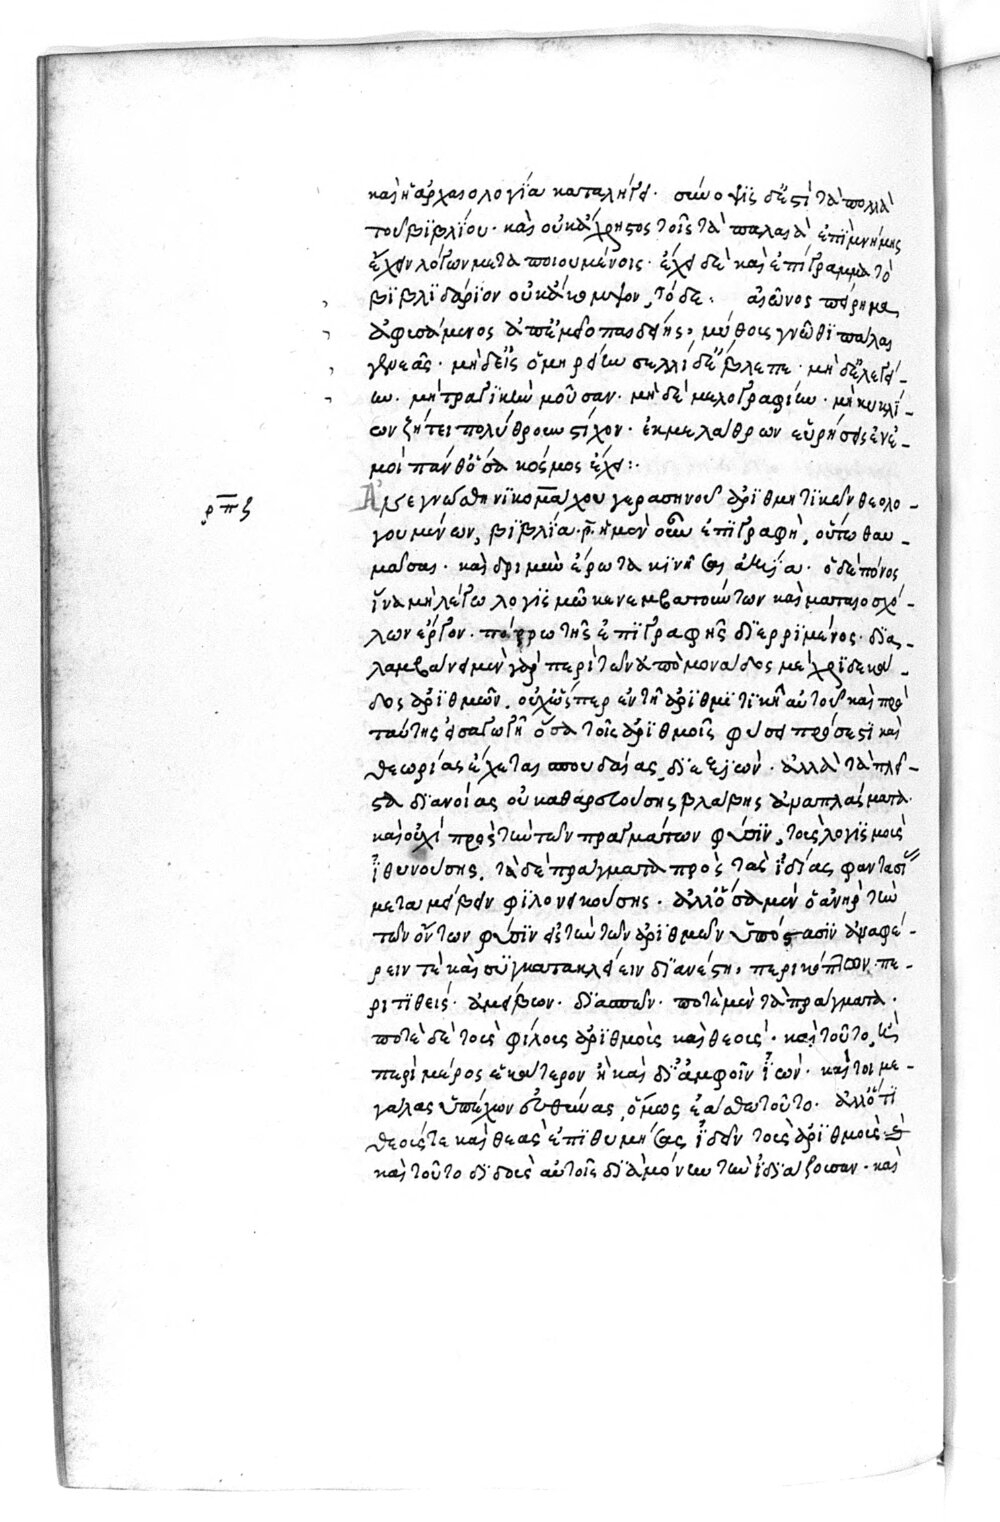 καὶ ἡ ἀρχαιολογία καταλήγει. σύνοψις δέ ἐστι τὰ πολλὰ
τοῦ βιβλίου. καὶ οὐκ ἄχρηστος τοῖς τὰ παλαιὰ ἐπὶ μνήμης
ἔχειν λόγον μεταποιουμένοις. ἔχει δὲ καὶ ἐπίγραμμα τὸ
βιβλιδάριον οὐκ ἄκομψον, τόδε. αἰῶνος πείρημα
ἀφυσάμενος ἀπ' ἐμεῖο παιδείης, μύθους γνῶθι παλαι
γενέας. μηδ' εἰς ὁμηρείην σελίδ' ἔμβλεπε. μηδ' ἐλεγεί-
ην. μὴ τραγικὴν μοῦσαν. μηδὲ μελογραφίην. μὴ κυκλί-
ων ζήτει πολύθροων στίχον. ἐκ μελάθρων εὑρήσεις ἐν ἐ-
μοὶ πάνθ' ὅσα κόσμος ἔχει:.
ρπζ Ἀνεγνώσθη νικομάχου γερασηνοῦ ἀριθμητικῶν θεολο-
γουμένων, βιβλία β. ἡ μὲν οὖν ἐπιγραφὴ, οὕτω θαυ-
μάσαι. καὶ δριμὺν ἔρωτα κινῆσαι ἀξία. ὁ δὲ πόνος
ἵνα μὴ λέγω λογισμῶν κενεμβατούντων καὶ ματαιοσχό-
λων ἔργον. πόρρω τῆς ἐπιγραφῆς διερριμένος. δια-
λαμβάνει μὲν γὰρ περὶ τῶν ἀπὸ μονάδος μέχρι δεκά-
δος ἀριθμῶν. οὐχ ὥσπερ ἐν τῆ ἀριθμητικῆ αὐτοῦ καὶ πρὸ
ταύτης εἰσαγωγῆ ὅσα τοῖς ἀριθμοῖς φύσει πρόσεστι καὶ
θεωρίας ἔχεται σπουδαίας, διεξιών. ἀλλὰ τὰ πλεῖ-
στα διανοίας οὐ καθαρευούσης βλάβης ἀναπλάσματα.
καὶ οὐχὶ πρὸς τὴν τῶν πραγμάτων φύσιν, τοὺς λογισμοὺς
ἰθυνούσης, τὰ δὲ πράγματα πρὸς τὰς ἰδίας φαντασί
μεταμείβειν φιλονεικούσης. ἀλλ' ὅσα μὲν ὁ ἀνὴρ τὴν
τῶν ὄντων φύσιν εἰς τὴν τῶν ἀριθμῶν ὑπόστασιν ἀναφέ-
ρειν τὲ καὶ συγκατακλείειν διανέστη, περικόπτων. πε-
ριτιθείς. ἀμείβων. διασπῶν. ποτὲ μὲν τὰ πράγματα.
ποτὲ δὲ τοὺς φίλους ἀριθμοὺς καὶ θεοὺς. καὶ τοῦτο, καὶ
περὶ μέρος ἑκάτερον ἢ καὶ δι' ἀμφοῖν ἰών. καὶ τοι με-
γάλας ὑπέχων εὐθύνας, ὅμως ἐάσθω τοῦτο. ἀλλ' ὅτι
θεούς τε καὶ θεὰς ἐπιθυμήσας ἰδεῖν τοὺς ἀριθμοὺς
καὶ τοῦτο διδοὺς αὐτοῖς διὰ μόνων τὴν ἰδιάζουσαν. καὶ